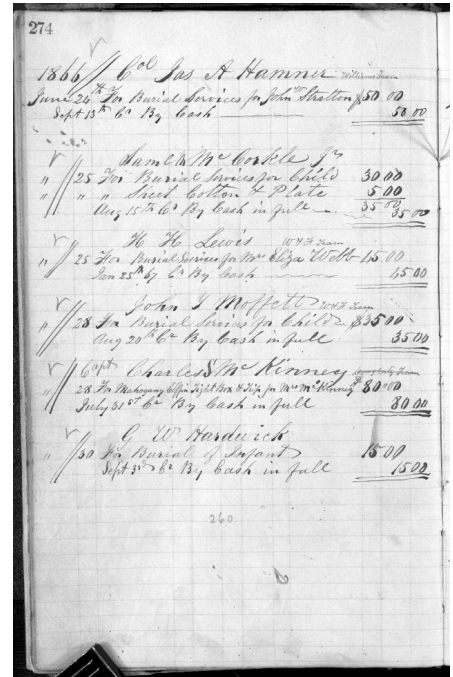 274
1866 Col Jas A Hamner Williams Team
June 24th For Burial Services for John W Stratton $50 00
Sept 13th Cr By Cash 50 00
Saml W McCorkle Jr
" 25 For Burial Services for Child 30 00
" " " Sheet Cotton & Plate 5 00
35 00
Aug 15th Cr By Cash in full 35 00
H H Lewis W H F Team
" 25 For Burial Services for Mrs Eliza Webb 45 00
Jan 25th 67 Cr By Cash 45 00
John J Moffett W H F Team
" 28 For Burial Services for Child $35 00
Aug 20th Cr By Cash in full 35 00
Capt Charles S McKinney Team
28 For Mahogany Coffin Box & for Mrs McKinney $80 00
July 31st Cr By Cash in full 80 00
G W Hardwick
" 30 For Buriale of Infant 15 00
Sept 3d Cr By Cash in full 15 00
260